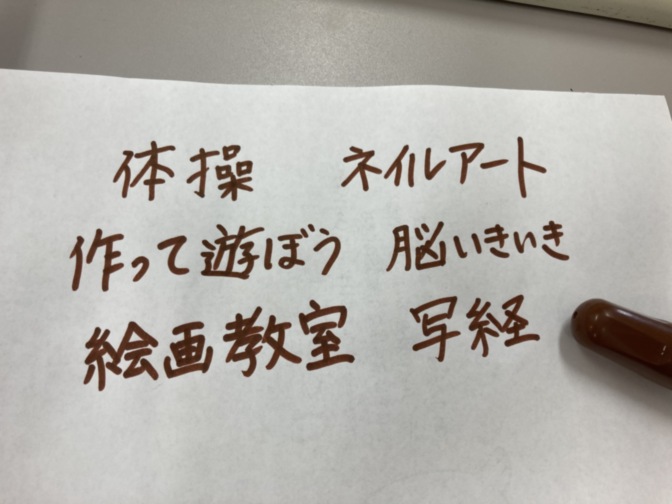 体操 ネイルアート
作って遊ぼう 脳いきいき
絵画教室 写経